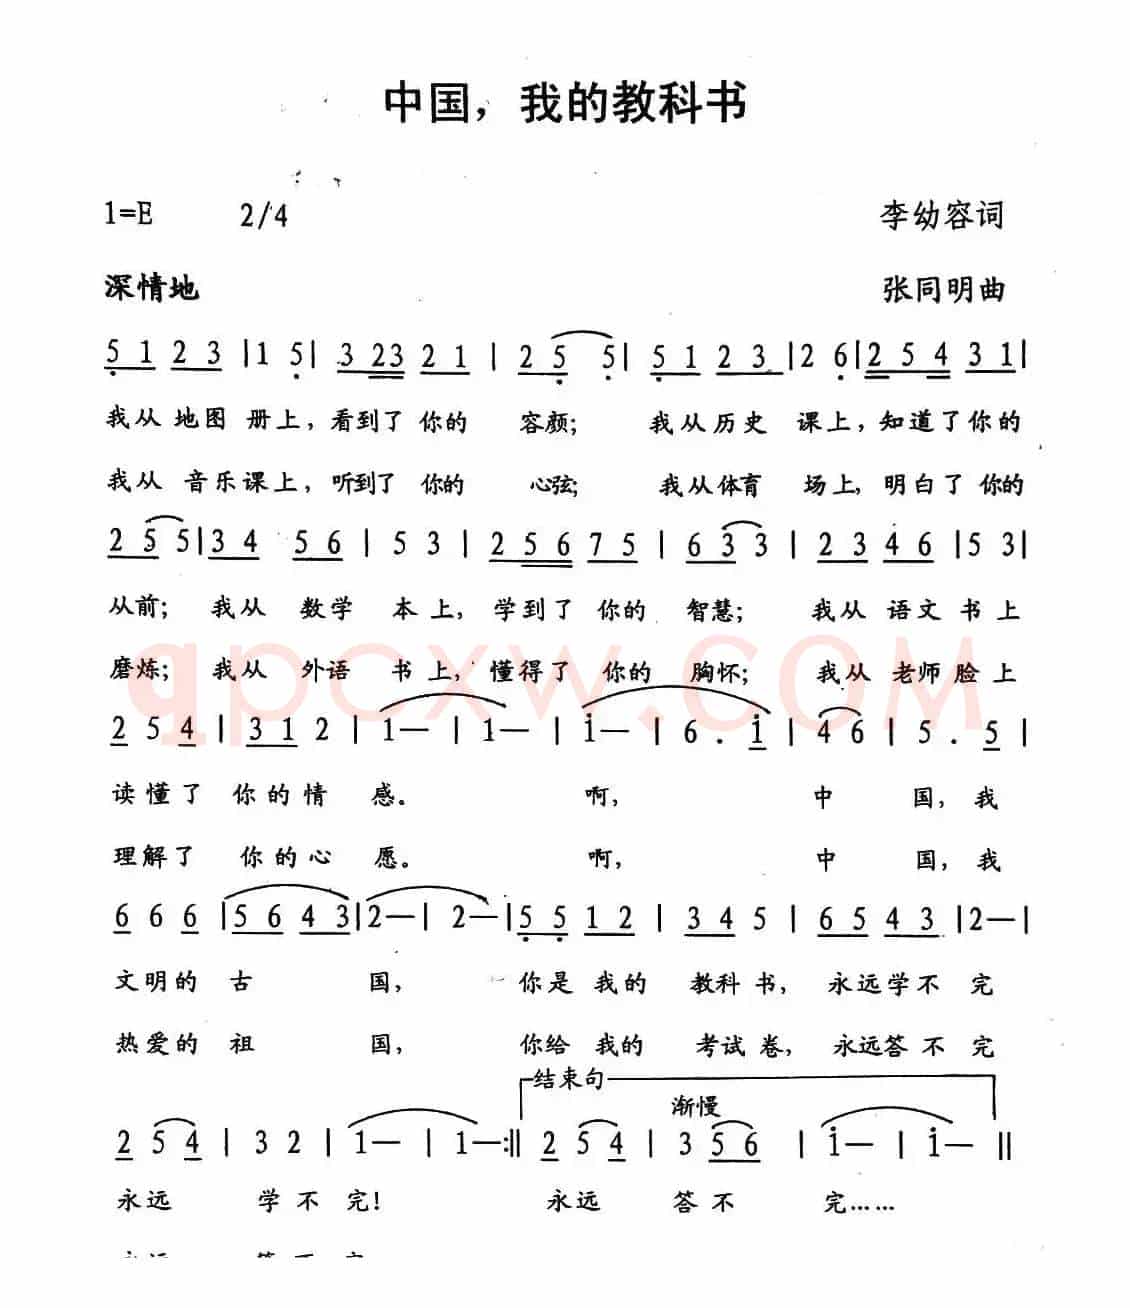 中国，我的教科书
1=E 2/4 李幼容词
深情地 张同明曲
5 1 2 3 | 1 5 | 3 23 2 1 | 2 5 5 | 5 1 2 3 | 2 6 | 2 5 4 3 1 |
我从 地图 册上，看到了 你的 容颜； 我从历史 课上，知道了你的
我从 音乐课上，听到了 你的 心弦； 我从体育 场上，明白了你的
2 5 5 | 3 4 5 6 | 5 3 | 2 5 6 7 5 | 6 3 3 | 2 3 4 6 | 5 3 |
从前； 我从 数学 本上，学到了 你的 智慧； 我从 语文 书上
磨炼； 我从 外语 书上，懂得了 你的 胸怀； 我从 老师 脸上
qpcxw.COM
2 5 4 | 3 1 2 | 1— | 1— | i— | 6 . i | 4 6 | 5 . 5 |
读懂了 你的情 感。 啊， 中 国，我
理解了 你的心 愿。 啊， 中 国，我
6 6 6 | 5 6 4 3 | 2— | 2— | 5 5 1 2 | 3 4 5 | 6 5 4 3 | 2— |
文明的 古 国， 你是 我的 教科 书， 永远学不 完
热爱的 祖 国， 你给 我的 考试 卷， 永远答不 完
结束句
渐慢
2 5 4 | 3 2 | 1— | 1— :|| 2 5 4 | 3 5 6 | i— | i— ||
永远 学不 完！ 永远 答不 完……